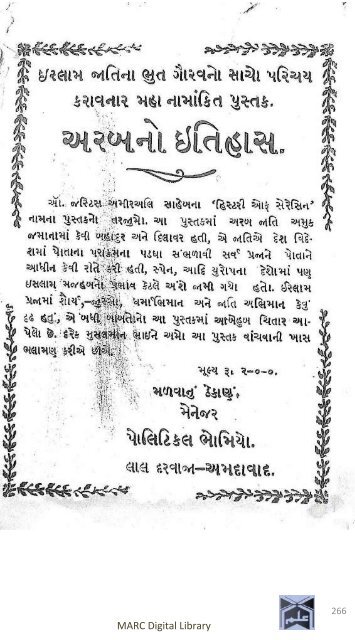 ઇસ્લામ જાતિના ભુત ગૌરવનો સાચો પરિચય
કરાવનાર મહા નામાંકિત પુસ્તક.
અરબનો ઇતિહાસ.
ઑ. જસ્ટિસ અમીરઅલિ સાહેબના 'હિસ્ટરી ઓફ સેરેસિન'
નામના પુસ્તકનો તરજુમો. આ પુસ્તકમાં અરબ જાતિ અમુક
જમાનામાં કેવી બહાદુર અને દિલાવર હતી, એ જાતિએ દેશ વિદે-
શમાં પોતાના પરાક્રમના પડઘા સંભળાવી સર્વ પ્રજાને પોતાને
આધીન કેવી રીતે કરી હતી, સ્પેન, આદિ યુરોપના દેશોમાં પણ
ઇસલામ મઝહબનો પ્રભાવ કેટલે અંશે જામી ગયો હતો. ઇસ્લામ
પ્રજામાં શૌર્ય, જુસ્સો, ધર્માભિમાન અને જાતિ અભિમાન કેવું
દૃઢ હતું, એ બધી બાબતોનો આ પુસ્તકમાં આબેહુબ ચિતાર આ-
પેલો છે. દરેક મુસલમાન ભાઇને અમો આ પુસ્તક વાંચવાની ખાસ
ભલામણ કરીએ છીએ.
મૂલ્ય રૂ. ૨-૦-૦.
મળવાનું ઠેકાણું.
મેનેજર
પોલિટિકલ ભોમિયો.
લાલ દરવાજા—અમદાવાદ.
266
MARC Digital Library